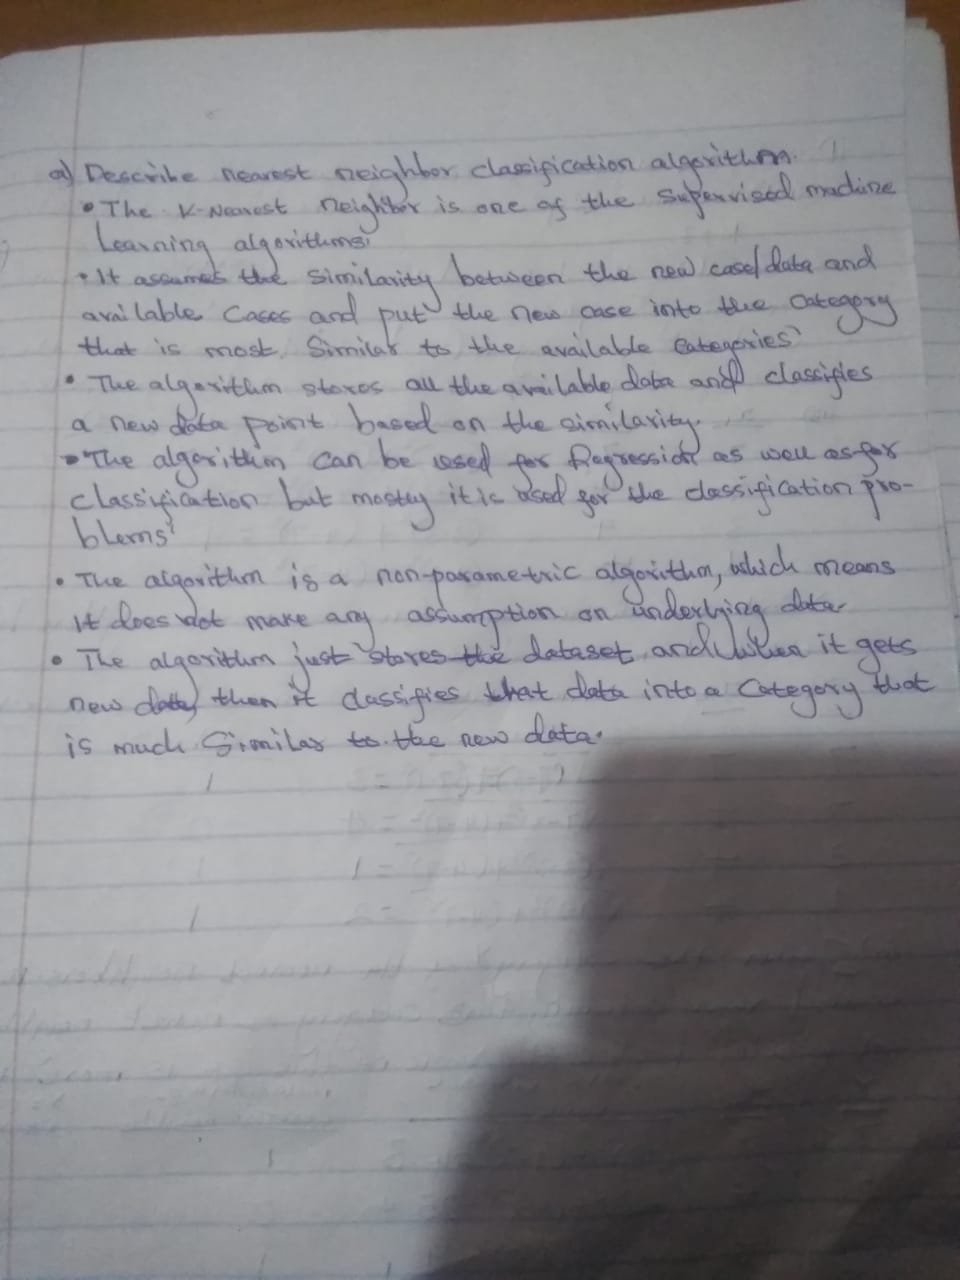 a) Describe nearest neighbor classification algorithm.
• The K-Nearest neighbor is one of the supervised machine
Learning algorithms.
• It assumes the similarity between the new case/data and
available cases and put the new case into the category
that is most similar to the available categories.
• The algorithm stores all the available data and classifies
a new data point based on the similarity.
• The algorithm can be used for Regression as well as for
classification but mostly it is used for the classification pro-
blems.
• The algorithm is a non-parametric algorithm, which means
it does not make any assumption on underlying data.
• The algorithm just stores the dataset and when it gets
new data, then it classifies that data into a category that
is much similar to the new data.